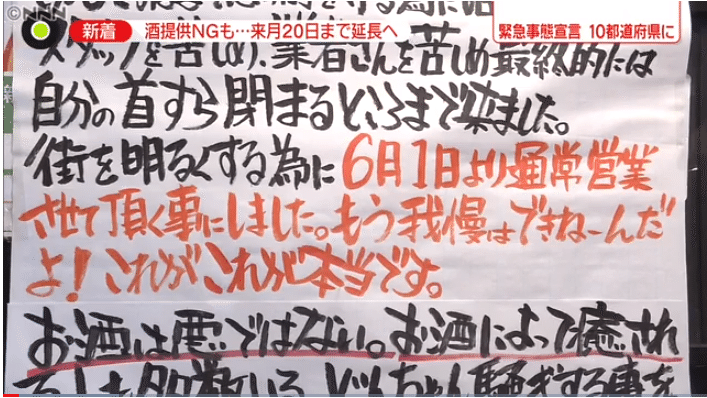 ©NNN
新着 酒提供NGも…来月20日まで延長へ
緊急事態宣言 10都道府県に
スタッフを苦しめ、業者さんを苦しめ最終的には
自分の首すら閉まるところまで来ました。
街を明るくする為に6月1日より通常営業
させて頂く事にしました。もう我慢はできねーんだ
よ!これがこれが本当です。
お酒は悪ではない。お酒によって癒され
る人も多数いる どんちゃん騒ぎする事を